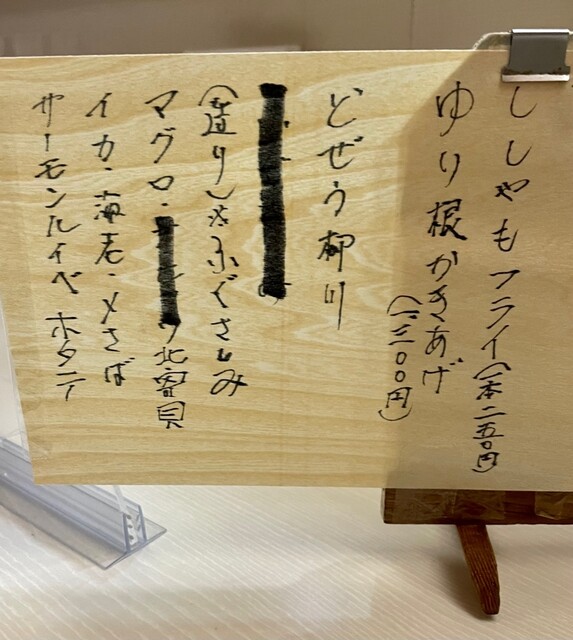 ししゃもフライ(一本二五〇円)
ゆり根かきあげ
(一、三〇〇円)
どぜう柳川
(造り)しまふぐさしみ
マグロ・
北寄貝
イカ・海老・〆さば
サーモンルイベ ホタテ